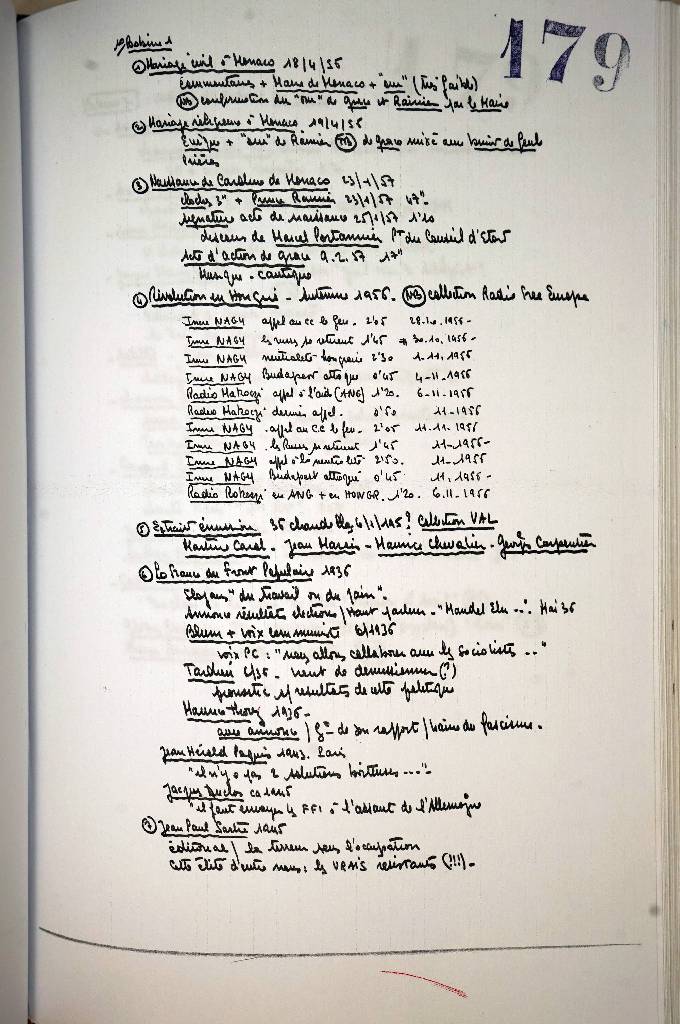 179
1) Bobine 1
① Mariage civil à Monaco 18/4/56
Commentaires + Maire de Monaco + "oui" (très faible)
NB confirmation du "oui" de Grace et Rainier par le Maire
② Mariage religieux à Monaco 19/4/56
Evêque + "oui" de Rainier NB de Grace mixé avec
Prières
③ Naissance de Caroline de Monaco 23/1/57
cloches 3" + Prince Rainier 23/1/57 47"
signature acte de naissance 25/1/57 1'10
discours de Marcel Portanier Pt du Conseil d'Etat
Acte d'action de grâce 9.2.57 17"
Musique - cantique
④ Révolution en Hongrie - Automne 1956. NB collection Radio Free Europe
Imre NAGY appel au c.c. le feu. 2'05 28.10.1956-
Imre NAGY les russes se retirent 1'45 30.10.1956-
Imre NAGY neutralité hongroise 2'30 1-11.1956
Imre NAGY Budapest attaqué 0'45 4-11-1956
Radio Rakoczi appel à l'aide (ANG) 1'20. 6-11-1956
Radio Rakoczi dernier appel. 0'50 11-1956
Imre NAGY appel au c.c. le feu - 2'05 11-11-1956
Imre NAGY les Russes se retirent 1'45 11-1956-
Imre NAGY appel à la neutralité 2'50. 11-1956
Imre NAGY Budapest attaqué 0'45 11.1956-
Radio Rakoczi en ANG + en HONGR. 1'20. 6.11.1956
⑤ Extrait émission 36 chandelles 6/1/195? Collection VAL
Martine Carol - Jean Marais - Maurice Chevalier - Georges Carpentier
⑥ La France du Front Populaire 1936
Slogans "du travail ou du pain".
Annonce résultats élections / Haut parleur - "Mandel Elu ...". Mai 36
Blum + voix communiste 6/1936
voix PC : "nous allons collaborer avec les socialistes ..."
Tardieu 6/36 - vient de démissionner (?)
pronostic s/ résultats de cette politique
Maurice Thorez 1936-
avec annonce / de son rapport / haine du fascisme.
Jean Hérold Paquis 1943. Paris
"il n'y a pas 2 solutions boiteuses ..."-
Jacques Duclos ca 1945
"il faut envoyer les FFI à l'assaut de l'Allemagne
⑦ Jean Paul Sartre 1945
éditorial / la terreur sous l'occupation
cette élite d'entre nous : les VRAIS résistants (!!!)-